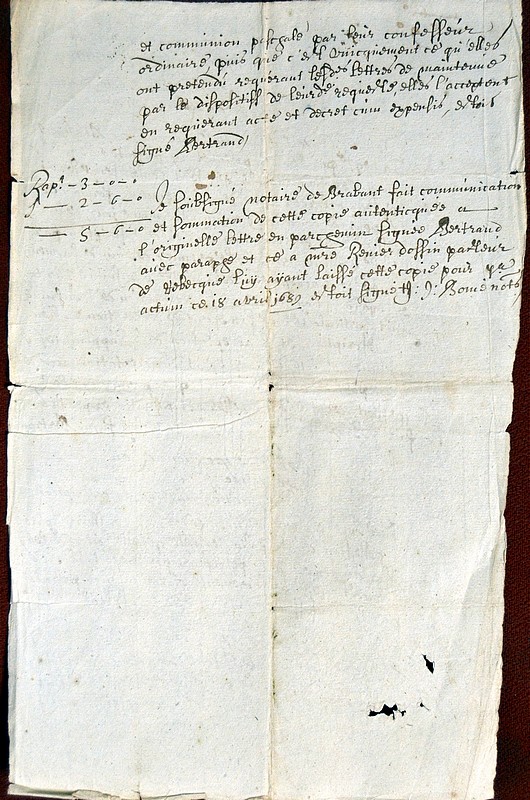 et communion paschale par leur confesseur
ordinaire, puis que c'est l'unicquement ce qu'elles
ont pretendu requerant lesds lettres de maintenue
par le dispositif de leurde requeste elles l'acceptent
en requerant acte et decret cum expensis, estoit
signé Bertrand,
Rapt - 3 - 0 - 0
2 - 6 - 0
5 - 6 - 0
Je soubsigné notaire de Brabant fait communication
et sommation de cette copie autenticquée a
l'originelle lettre en parcgemin signee Bertrand
avec paraphe et ce a mre Renier dossin pasteur
de Rebecque luy ayant laissé cette copie pour
actum ce 18 avril 1689 estoit signé J: Bome nots